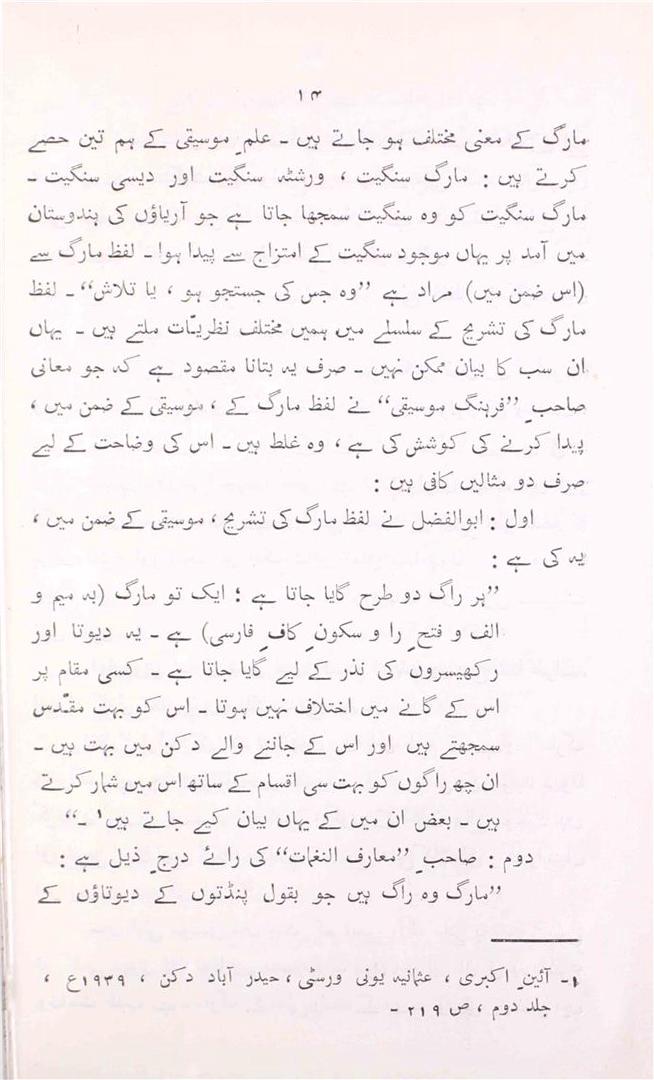 ۱۴
مارگ کے معنی مختلف ہو جاتے ہیں ۔ علمِ موسیقی کے ہم تین حصے
کرتے ہیں : مارگ سنگیت ، ورشٹہ سنگیت اور دیسی سنگیت ۔
مارگ سنگیت کو وہ سنگیت سمجھا جاتا ہے جو آریاؤں کی ہندوستان
میں آمد پر یہاں موجود سنگیت کے امتزاج سے پیدا ہوا ۔ لفظ مارگ سے
(اس ضمن میں) مراد ہے ”وہ جس کی جستجو ہو ، یا تلاش“ ۔ لفظ
مارگ کی تشریح کے سلسلے میں ہمیں مختلف نظریّات ملتے ہیں ۔ یہاں
ان سب کا بیان ممکن نہیں ۔ صرف یہ بتانا مقصود ہے کہ جو معانی
صاحبِ ”فرہنگ موسیقی“ نے لفظ مارگ کے ، موسیقی کے ضمن میں ،
پیدا کرنے کی کوشش کی ہے ، وہ غلط ہیں ۔ اس کی وضاحت کے لیے
صرف دو مثالیں کافی ہیں :
اول : ابوالفضل نے لفظ مارگ کی تشریح ، موسیقی کے ضمن میں ،
یہ کی ہے :
”ہر راگ دو طرح گایا جاتا ہے ؛ ایک تو مارگ (بہ میم و
الف و فتحِ را و سکونِ کافِ فارسی) ہے ۔ یہ دیوتا اور
رکھیسروں کی نذر کے لیے گایا جاتا ہے ۔ کسی مقام پر
اس کے گانے میں اختلاف نہیں ہوتا ۔ اس کو بہت مقدّس
سمجھتے ہیں اور اس کے جاننے والے دکن میں بہت ہیں ۔
ان چھ راگوں کو بہت سی اقسام کے ساتھ اس میں شمار کرتے
ہیں ۔ بعض ان میں کے یہاں بیان کیے جاتے ہیں۱ ۔“
دوم : صاحبِ ”معارف النغمات“ کی رائے درجِ ذیل ہے :
”مارگ وہ راگ ہیں جو بقول پنڈتوں کے دیوتاؤں کے
۱- آئینِ اکبری ، عثمانیہ یونی ورسٹی ، حیدر آباد دکن ، ۱۹۳۹ع ،
جلد دوم ، ص ۲۱۹ -